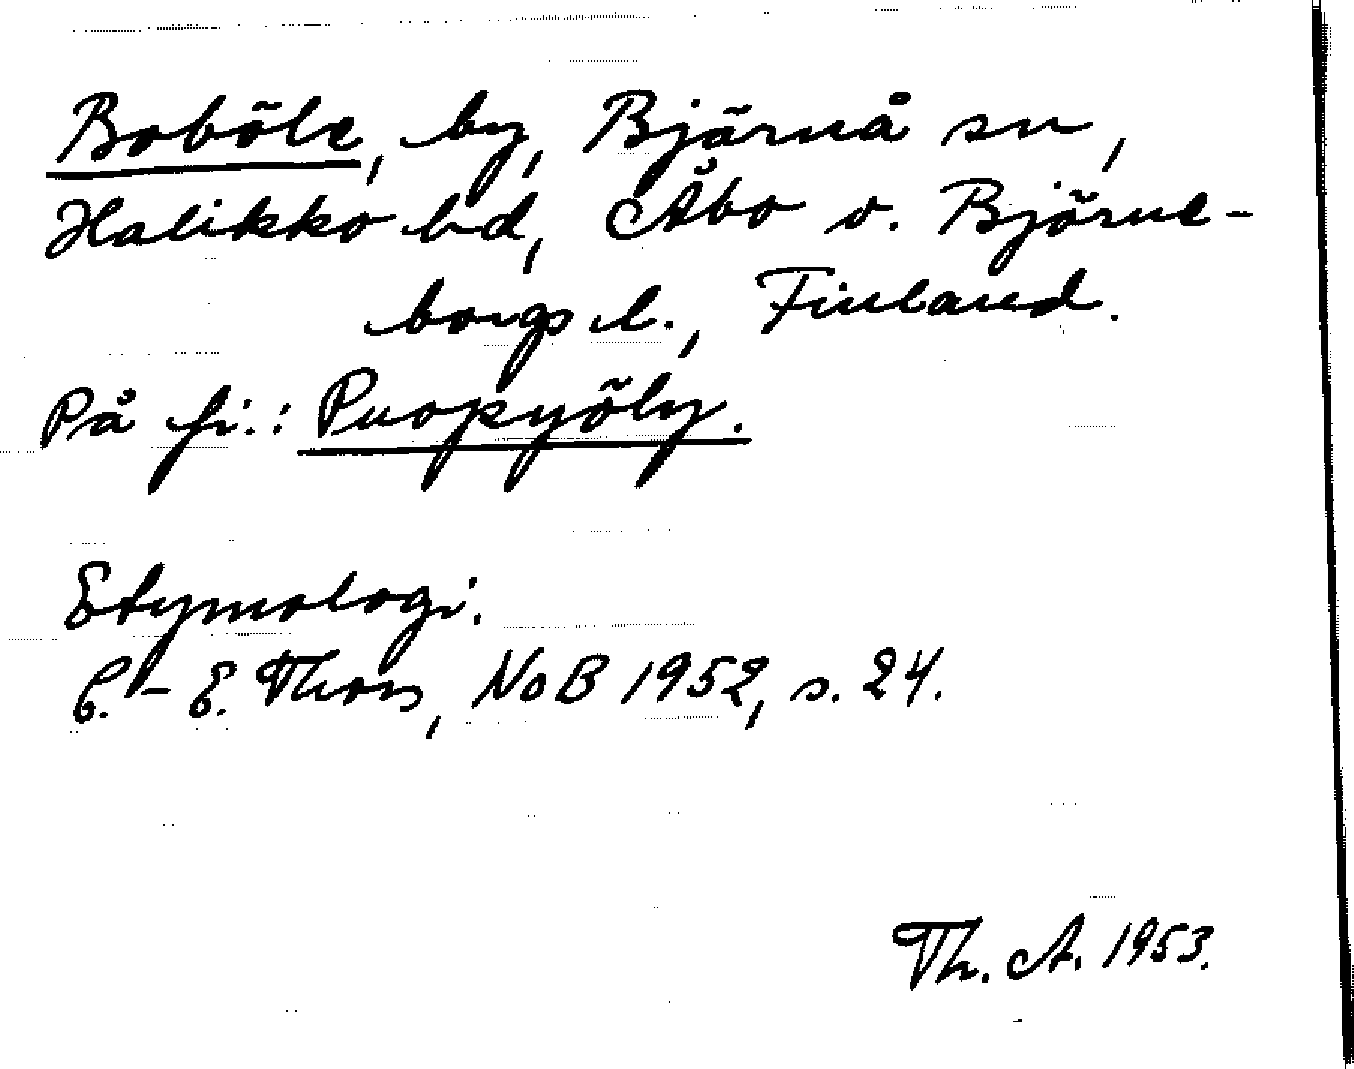 Boböle, by, Bjärnå sn,
Halikko hd, Åbo o. Björne-
borgs l., Finland.
På fi.: Puopyöly.
Etymologi.
C.-E. Thors, NoB 1952, s. 24.
Th. A. 1953.